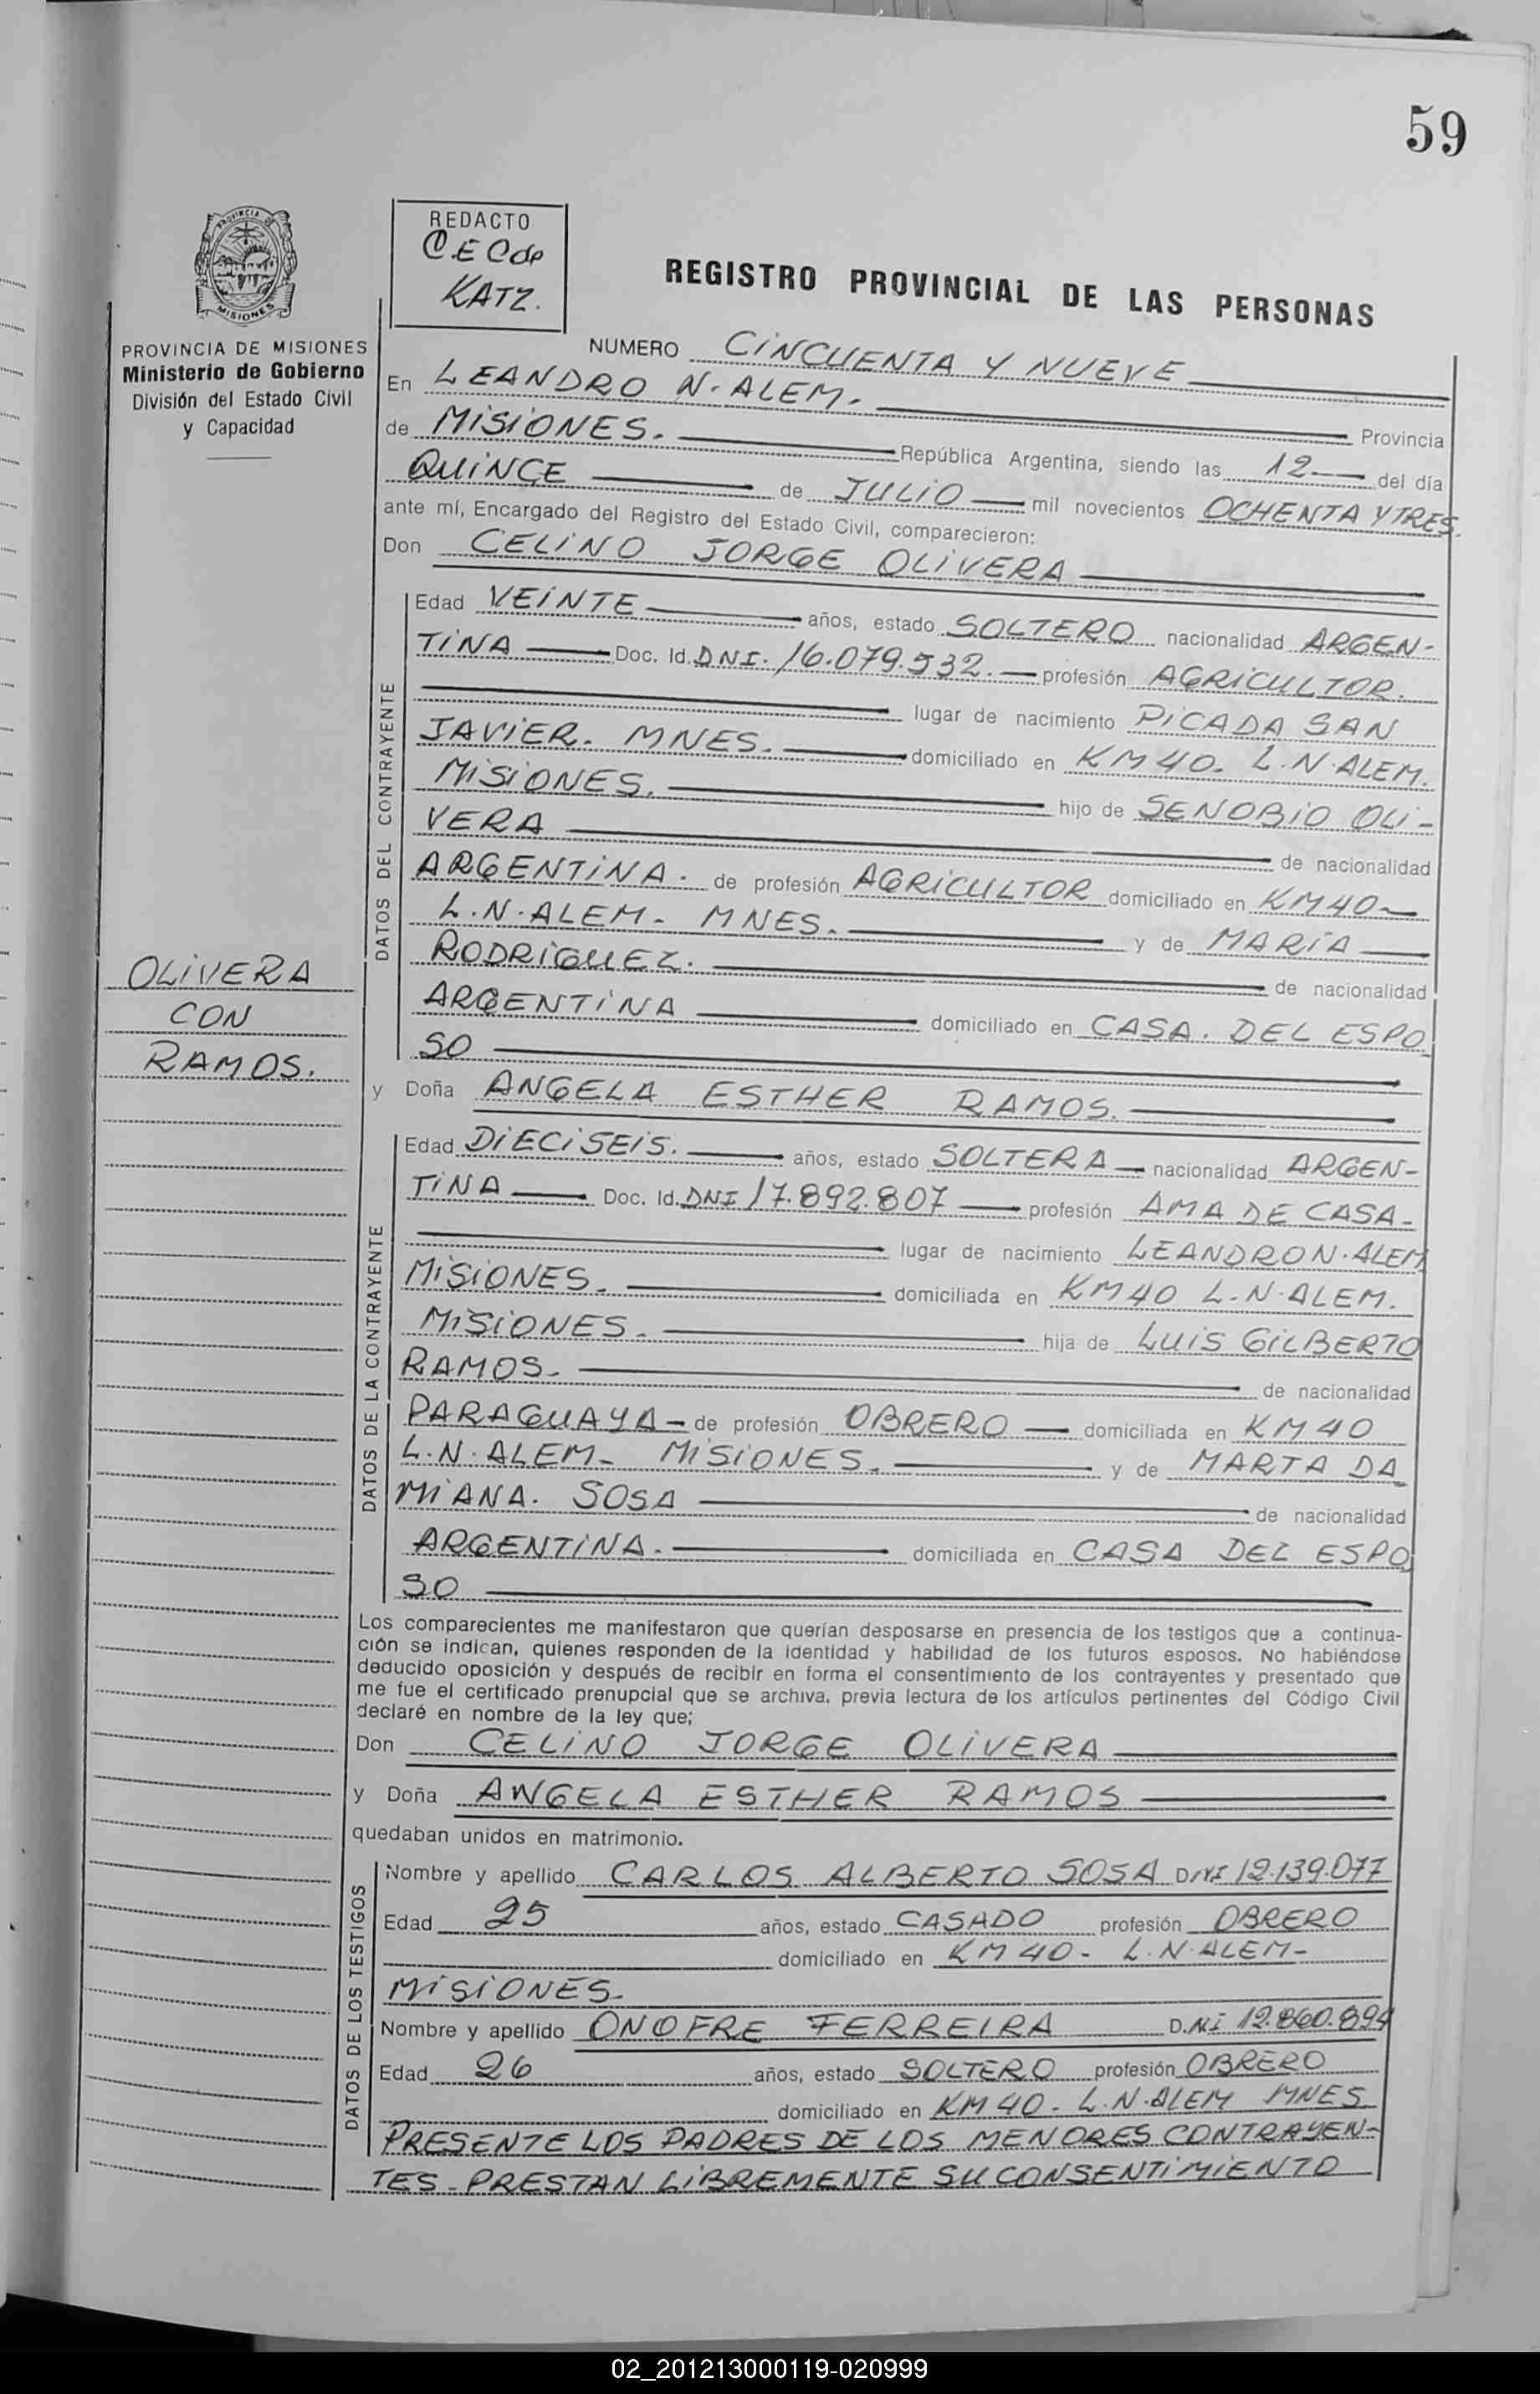 59
REDACTO
C.E.C de
KATZ.
REGISTRO PROVINCIAL DE LAS PERSONAS
PROVINCIA DE MISIONES
Ministerio de Gobierno
División del Estado Civil
y Capacidad
NUMERO CINCUENTA Y NUEVE
En LEANDRO N. ALEM.- Provincia
de MISIONES.- República Argentina, siendo las 12 del día
QUINCE de JULIO mil novecientos OCHENTA Y TRES.
ante mí, Encargado del Registro del Estado Civil, comparecieron:
Don CELINO JORGE OLIVERA
DATOS DEL CONTRAYENTE
Edad VEINTE años, estado SOLTERO nacionalidad ARGEN-
TINA Doc. Id. DNI. 16.079.532.- profesión AGRICULTOR.
lugar de nacimiento PICADA SAN
JAVIER. MNES.- domiciliado en KM 40- L.N.ALEM.
MISIONES.- hijo de SENOBIO OLI-
VERA de nacionalidad
ARGENTINA. de profesión AGRICULTOR domiciliado en KM 40-
L.N.ALEM- MNES.- y de MARIA
RODRIGUEZ.- de nacionalidad
ARGENTINA domiciliado en CASA. DEL ESPO
SO
OLIVERA
CON
RAMOS.
y Doña ANGELA ESTHER RAMOS.
DATOS DE LA CONTRAYENTE
Edad DIECISEIS. años, estado SOLTERA nacionalidad ARGEN-
TINA Doc. Id. DNI 17.892.807 profesión AMA DE CASA-
lugar de nacimiento LEANDRO N. ALEM
MISIONES.- domiciliada en KM 40 L.N.ALEM.
MISIONES.- hija de LUIS GILBERTO
RAMOS.- de nacionalidad
PARAGUAYA- de profesión OBRERO domiciliada en KM 40
L.N.ALEM- MISIONES.- y de MARTA DA
MIANA. SOSA de nacionalidad
ARGENTINA.- domiciliada en CASA DEL ESPO
SO
Los comparecientes me manifestaron que querían desposarse en presencia de los testigos que a continua-
ción se indican, quienes responden de la identidad y habilidad de los futuros esposos. No habiéndose
deducido oposición y después de recibir en forma el consentimiento de los contrayentes y presentado que
me fue el certificado prenupcial que se archiva, previa lectura de los artículos pertinentes del Código Civil
declaré en nombre de la ley que;
Don CELINO JORGE OLIVERA
y Doña ANGELA ESTHER RAMOS
quedaban unidos en matrimonio.
DATOS DE LOS TESTIGOS
Nombre y apellido CARLOS ALBERTO SOSA DNI 12.139.077
Edad 25 años, estado CASADO profesión OBRERO
domiciliado en KM 40- L.N.ALEM-
MISIONES.
Nombre y apellido ONOFRE FERREIRA D.NI 12.860.894
Edad 26 años, estado SOLTERO profesión OBRERO
domiciliado en KM 40- L.N.ALEM MNES
PRESENTE LOS PADRES DE LOS MENORES CONTRAYEN-
TES- PRESTAN LIBREMENTE SU CONSENTIMIENTO
02_201213000119-020999